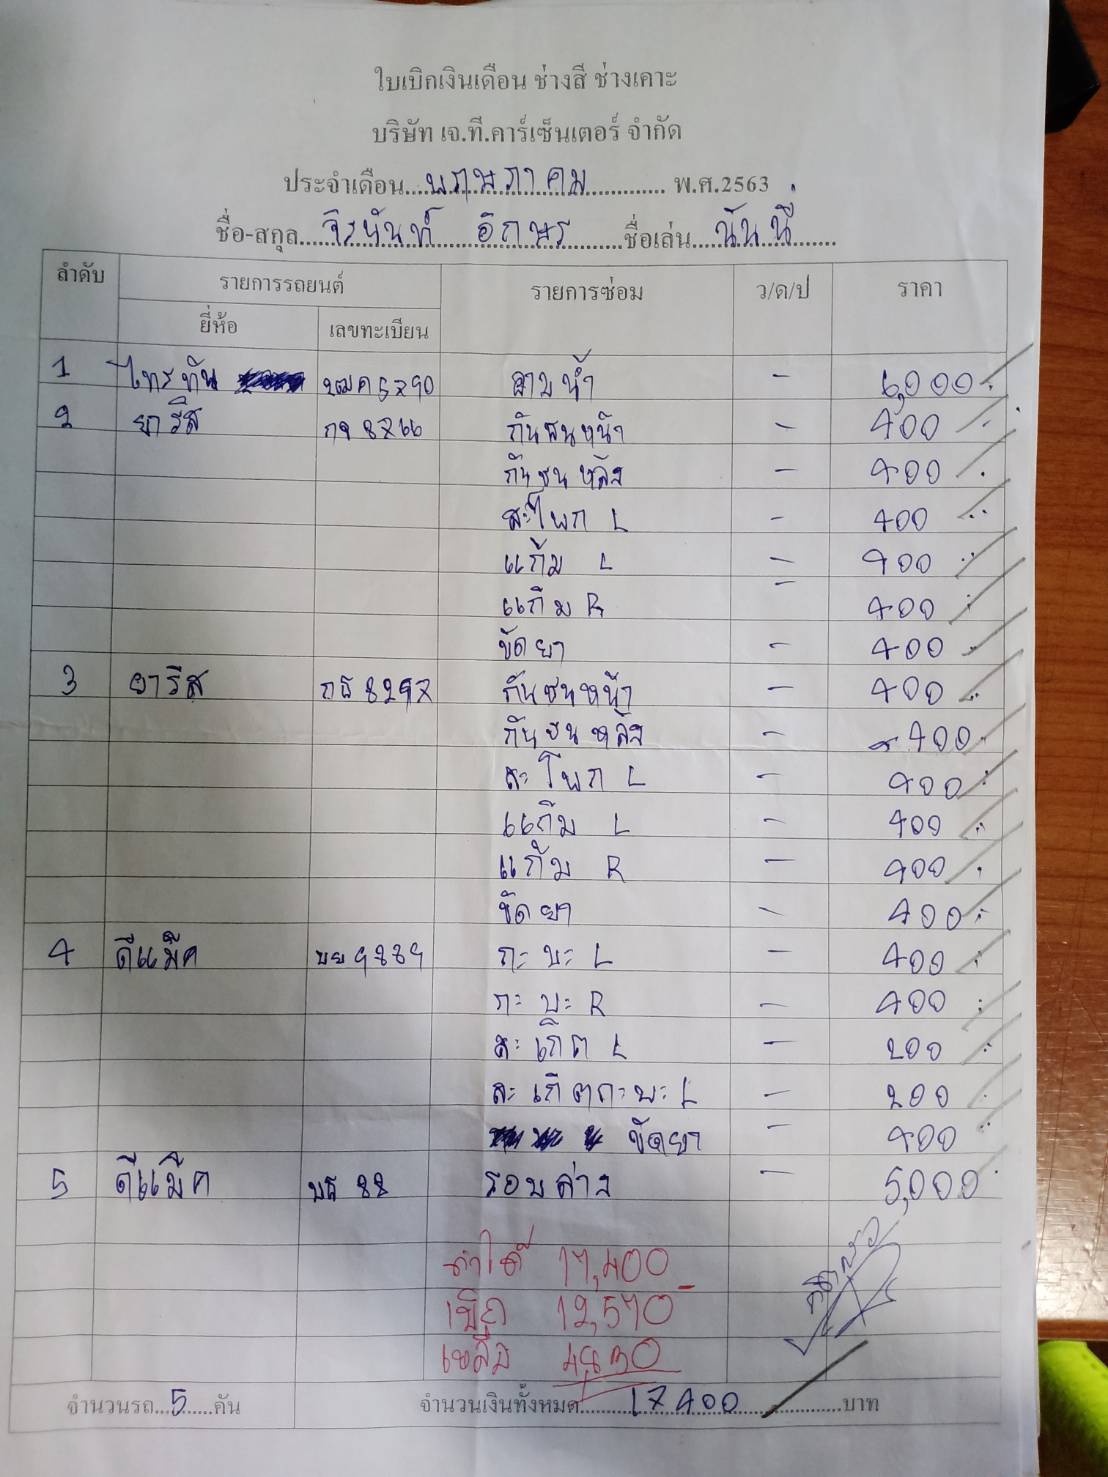 ใบเบิกเงินเดือน ช่างสี ช่างเคาะ
บริษัท เจ.ที.คาร์เซ็นเตอร์ จำกัด
ประจำเดือน...พฤษภาคม... พ.ศ.2563
ชื่อ-สกุล...จิรนันท์ อิกษร...ชื่อเล่น...นันนี่...
ลำดับ รายการรถยนต์ รายการซ่อม ว/ด/ป ราคา
ยี่ห้อ เลขทะเบียน
1 ไทรทัน 2ฒค5790 อาบน้ำ - 6,000
2 ยารีส กจ 8766 กันชนหน้า - 400
กันชนหลัง - 400
สะโพก L - 400
แก้ม L - 400
แก้ม R - 400
ขัดยา - 400
3 ยารีส กธ 8297 กันชนหน้า - 400
กันชนหลัง - 400
สะโพก L - 400
แก้ม L - 400
แก้ม R - 400
ขัดยา - 400
4 ดีแม็ค บย 9889 กะบะ L - 400
กะบะ R - 400
สะเก็ต L - 200
สะเก็ตกะบะ L - 200
ขัดยา - 400
5 ดีแม็ค บธ 88 รอบล่าง - 5,000
ทำได้ 17,400
เบิก 12,570
เหลือ 4830
จำนวนรถ...5...คัน จำนวนเงินทั้งหมด...17400...บาท